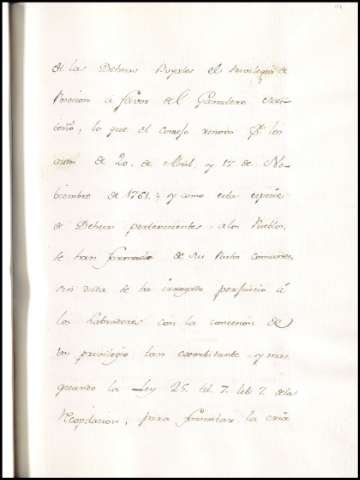 de las Dehesas Boyales el Privilegio de
Posesion á favor del Ganadero
lo que el consejo por los
autos de 20. de Abril, y 15. de No-
biembre de 1761. y como esta especie
de Dehesas pertenecientes a los Pueblos,
se han formado de sus Pastos comunes,
sin vista de lo perjuicio á
los Labradores con la concesion de
un privilegio tan exorbitante y mas
quando la Ley 25. tit. 7. lib. 7. de la
Recopilacion, para fomentar la cria